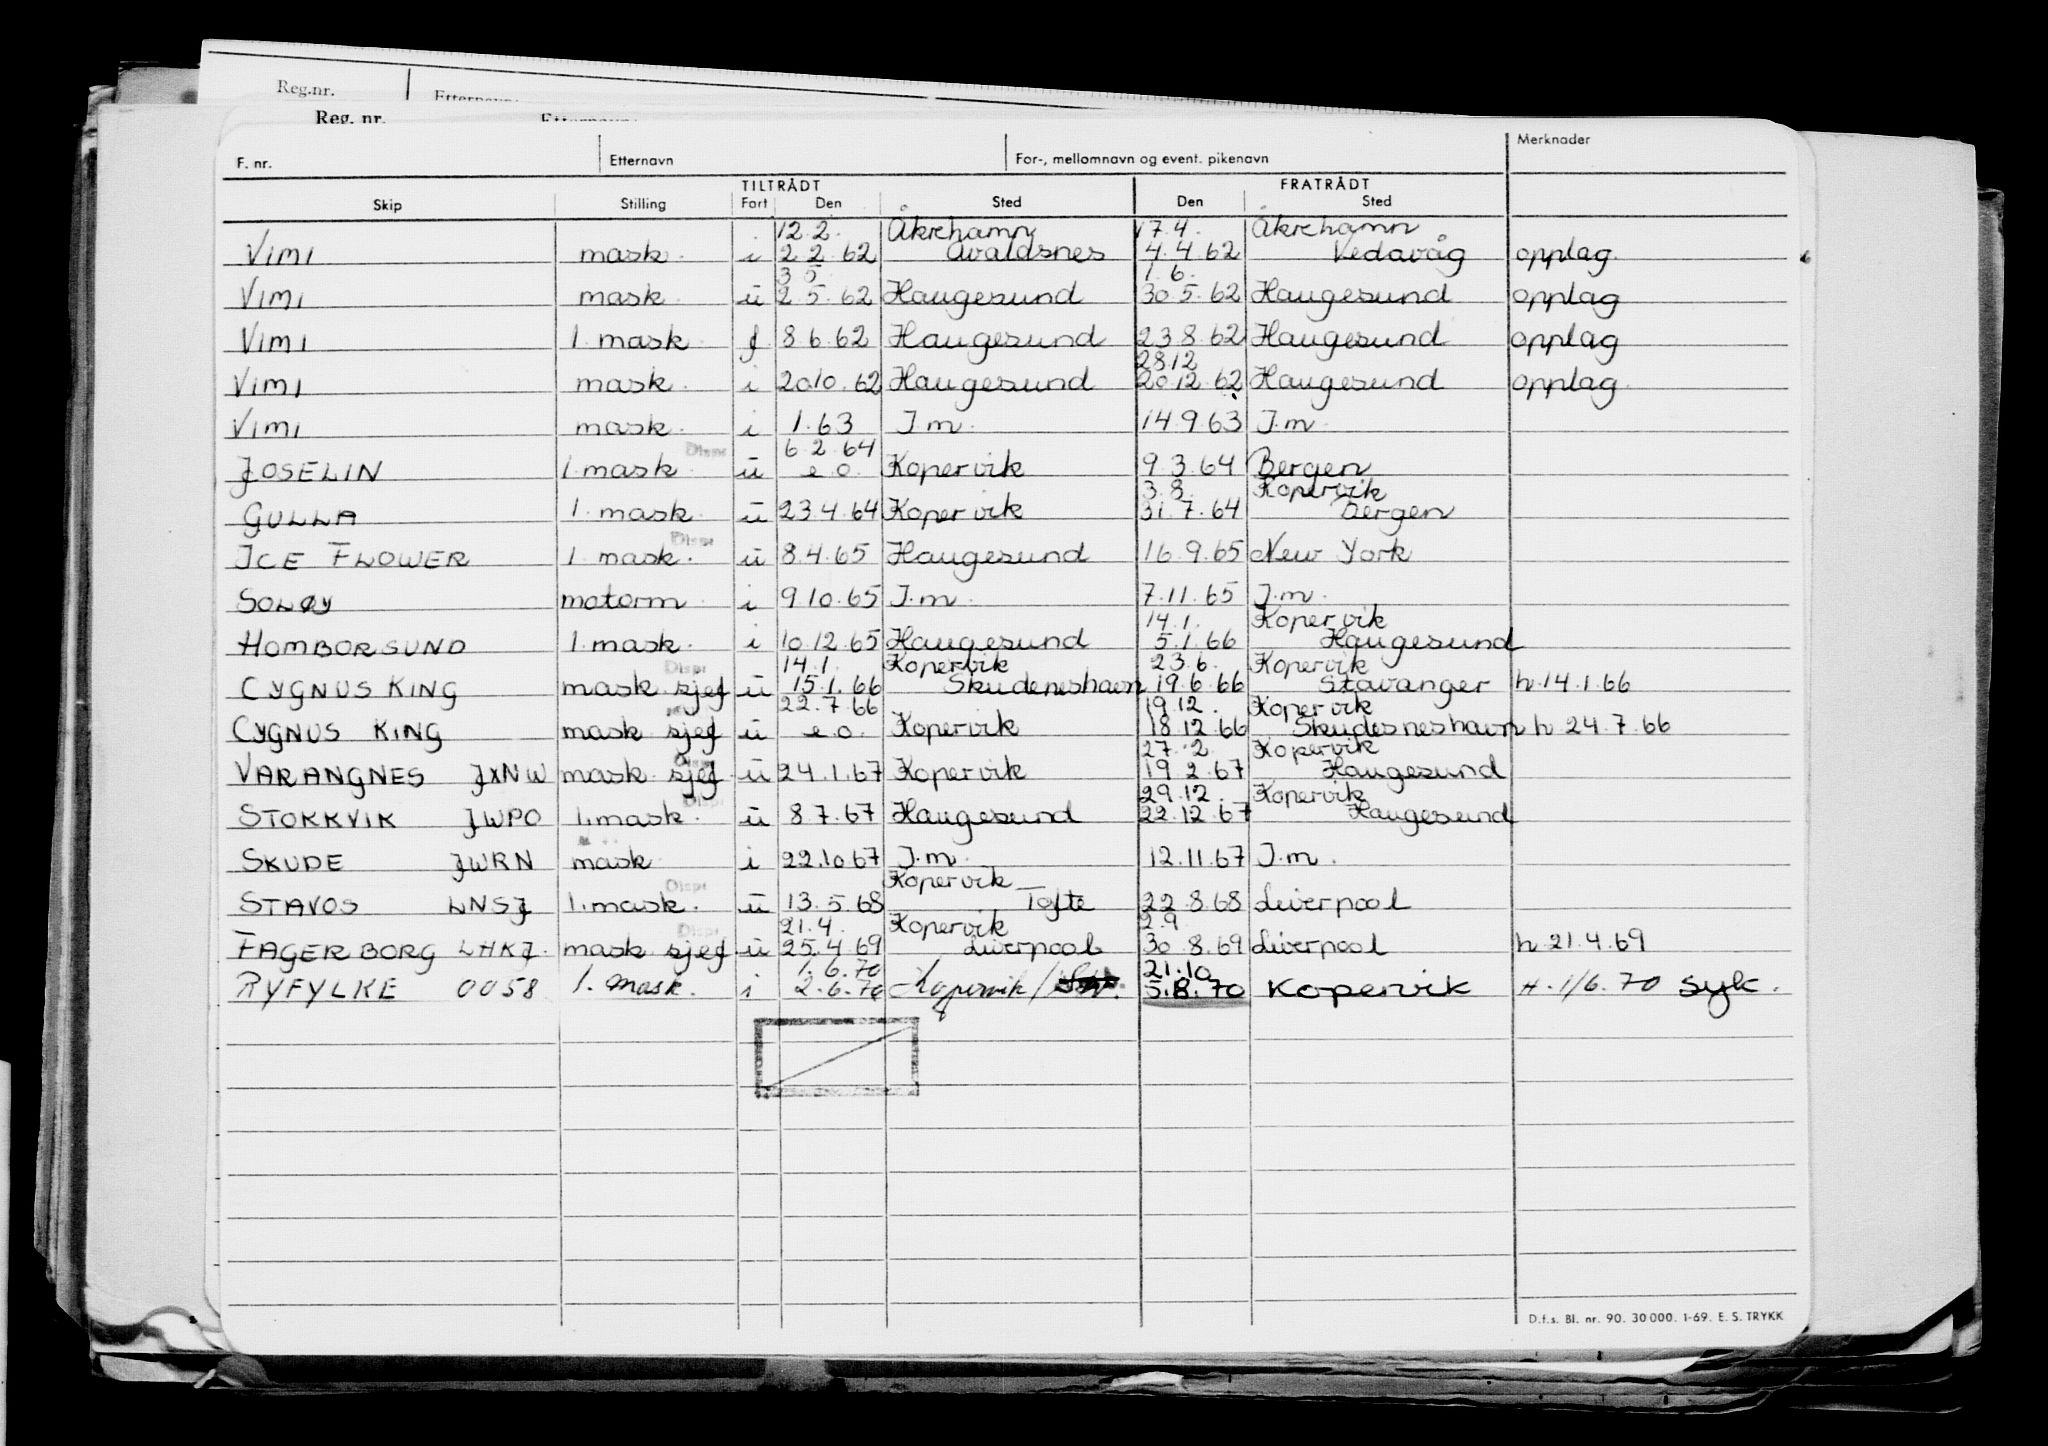 Reg.nr. Etternavn:
Reg. nr. Etternavn:
F. nr. Etternavn For-, mellomnavn og event. pikenavn Merknader
TILTRÅDT FRATRÅDT
Skip Stilling Fart Den Sted Den Sted
12.2. Åkrehamn 17.4. Åkrehamn
VIMI mask. i 2.2.62 Avaldsnes 4.4.62 Vedavåg opplag.
3.5 1.6.
VIMI mask. ū 2.5.62 Haugesund 30.5.62 Haugesund opplag
VIMI 1. mask. f 8.6.62 Haugesund 23.8.62 Haugesund opplag
28.12
VIMI mask. i 20.10.62 Haugesund 20.12.62 Haugesund opplag.
VIMI mask. i 1.63 I.m. 14.9.63 I.m.
Disp. 6.2.64
JOSELIN 1. mask. ū e.o. Kopervik 9.3.64 Bergen
3.8. Kopervik
GULLA 1. mask. ū 23.4.64 Kopervik 31.7.64 Bergen
Disp.
ICE FLOWER 1. mask. ū 8.4.65 Haugesund 16.9.65 New York
SOLØY motorm. i 9.10.65 I.m. 7.11.65 I.m.
14.1. Kopervik
HOMBORSUND 1. mask. i 10.12.65 Haugesund 5.1.66 Haugesund
Disp. 14.1. Kopervik 23.6. Kopervik
CYGNUS KING mask sjef ū 15.1.66 Skudeneshavn 19.6.66 Stavanger h.14.1.66
22.7.66 19.12. Kopervik
CYGNUS KING mask sjef ū e.o. Kopervik 18.12.66 Skudesneshavn h 24.7.66
Disp. 27.2. Kopervik
VARANGNES JXNW mask. sjef ū 24.1.67 Kopervik 19.2.67 Haugesund
Disp. 29.12. Kopervik
STOKKVIK JWPO 1. mask. ū 8.7.67 Haugesund 22.12.67 Haugesund
SKUDE JWRN mask. i 22.10.67 I.m. 12.11.67 I.m.
Disp. Kopervik
STAVOS LNSJ 1. mask. ū 13.5.68 Tofte 22.8.68 Liverpool
Disp. 21.4. Kopervik 2.9
FAGERBORG LHKJ. mask sjef ū 25.4.69 Liverpool 30.8.69 Liverpool h.21.4.69
1.6.70 21.10
RYFYLKE 0058 1. mask. i 2.6.70 Kopervik / 5.8.70 Kopervik H.1/6.70 syk.
D.f.s. Bl. nr. 90. 30 000. 1-69. E. S. TRYKK